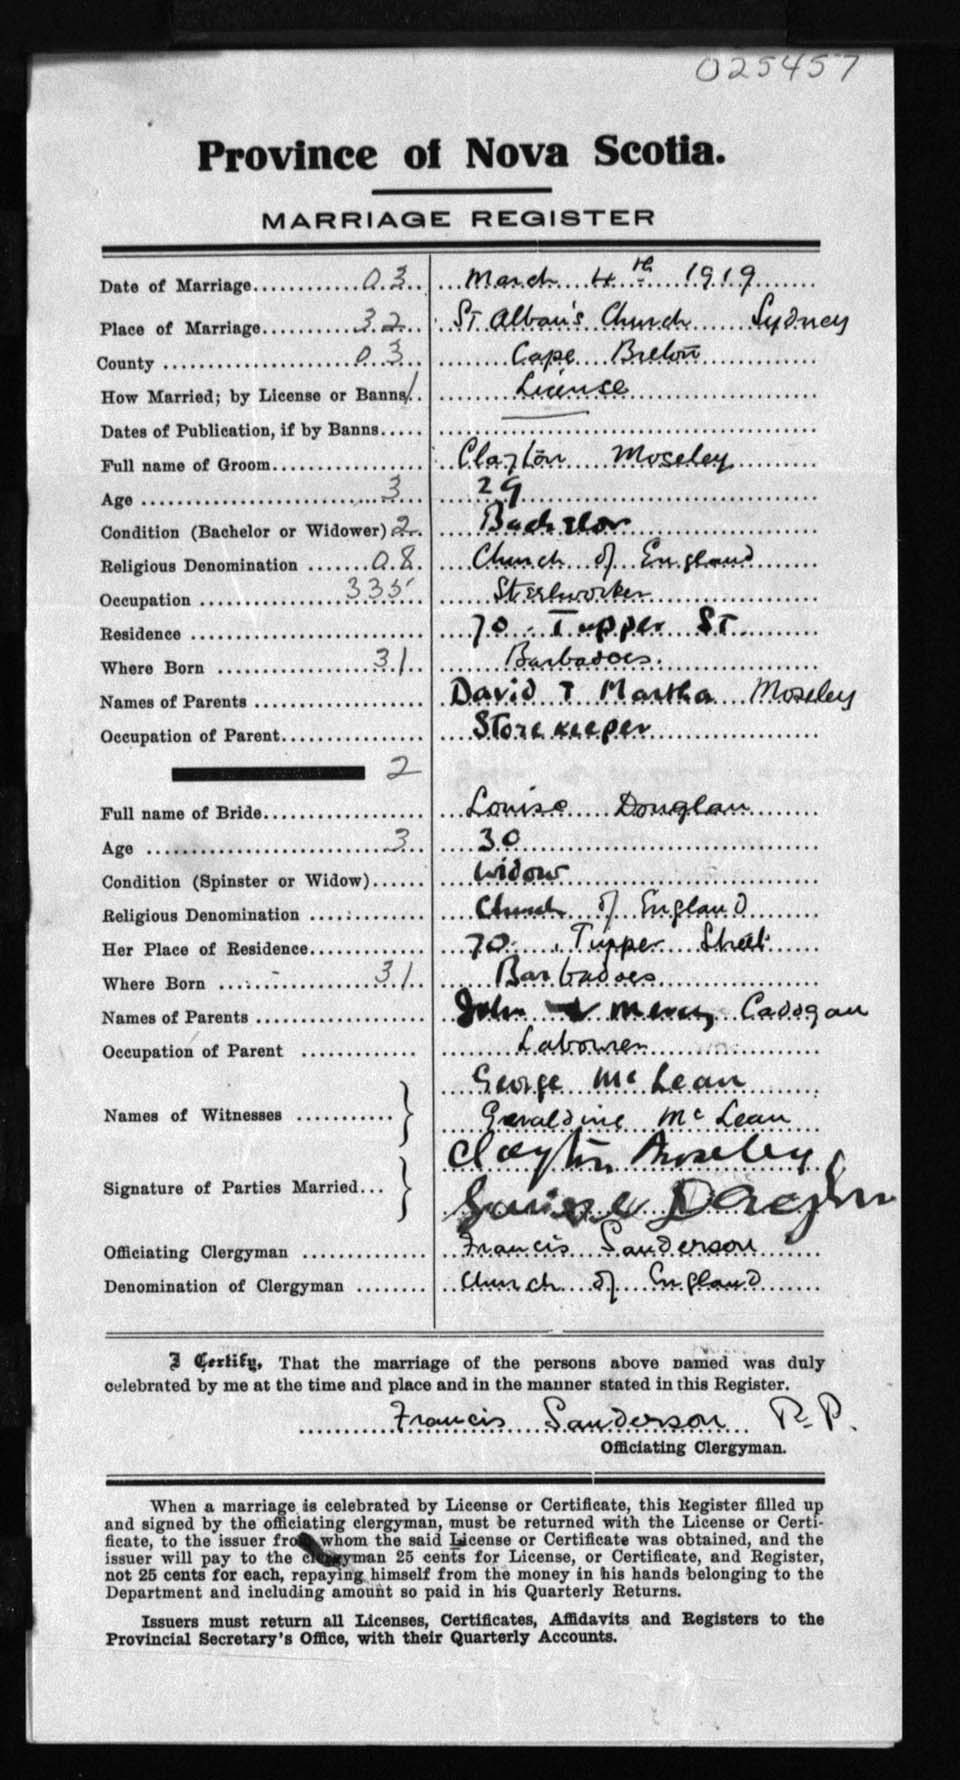 025457
Province of Nova Scotia.
MARRIAGE REGISTER
Date of Marriage 03 March 4th 1919
Place of Marriage 32 St Alban's Church Sydney
County 03 Cape Breton
How Married; by License or Banns 1 License
Dates of Publication, if by Banns
Full name of Groom Clayton Moseley
Age 3 29
Condition (Bachelor or Widower) 2 Bachelor
Religious Denomination 08 Church of England
Occupation 335 Steelworker
Residence 70 Tupper St
Where Born 31 Barbadoes.
Names of Parents David & Martha Moseley
Occupation of Parent Storekeeper
2
Full name of Bride Louise Douglan
Age 3 30
Condition (Spinster or Widow) Widow
Religious Denomination Church of England
Her Place of Residence 70 Tupper Street
Where Born 31 Barbadoes
Names of Parents John & Mercy Cadogan
Occupation of Parent Labourer
George McLean
Names of Witnesses
Geraldine McLean
Clayton Moseley
Signature of Parties Married
Louise
Officiating Clergyman Francis Sanderson
Denomination of Clergyman Church of England
I Certify, That the marriage of the persons above named was duly
celebrated by me at the time and place and in the manner stated in this Register.
Francis Sanderson P.P.
Officiating Clergyman.
When a marriage is celebrated by License or Certificate, this Register filled up
and signed by the officiating clergyman, must be returned with the License or Certi-
ficate, to the issuer from whom the said License or Certificate was obtained, and the
issuer will pay to the clergyman 25 cents for License, or Certificate, and Register,
not 25 cents for each, repaying himself from the money in his hands belonging to the
Department and including amount so paid in his Quarterly Returns.
Issuers must return all Licenses, Certificates, Affidavits and Registers to the
Provincial Secretary's Office, with their Quarterly Accounts.